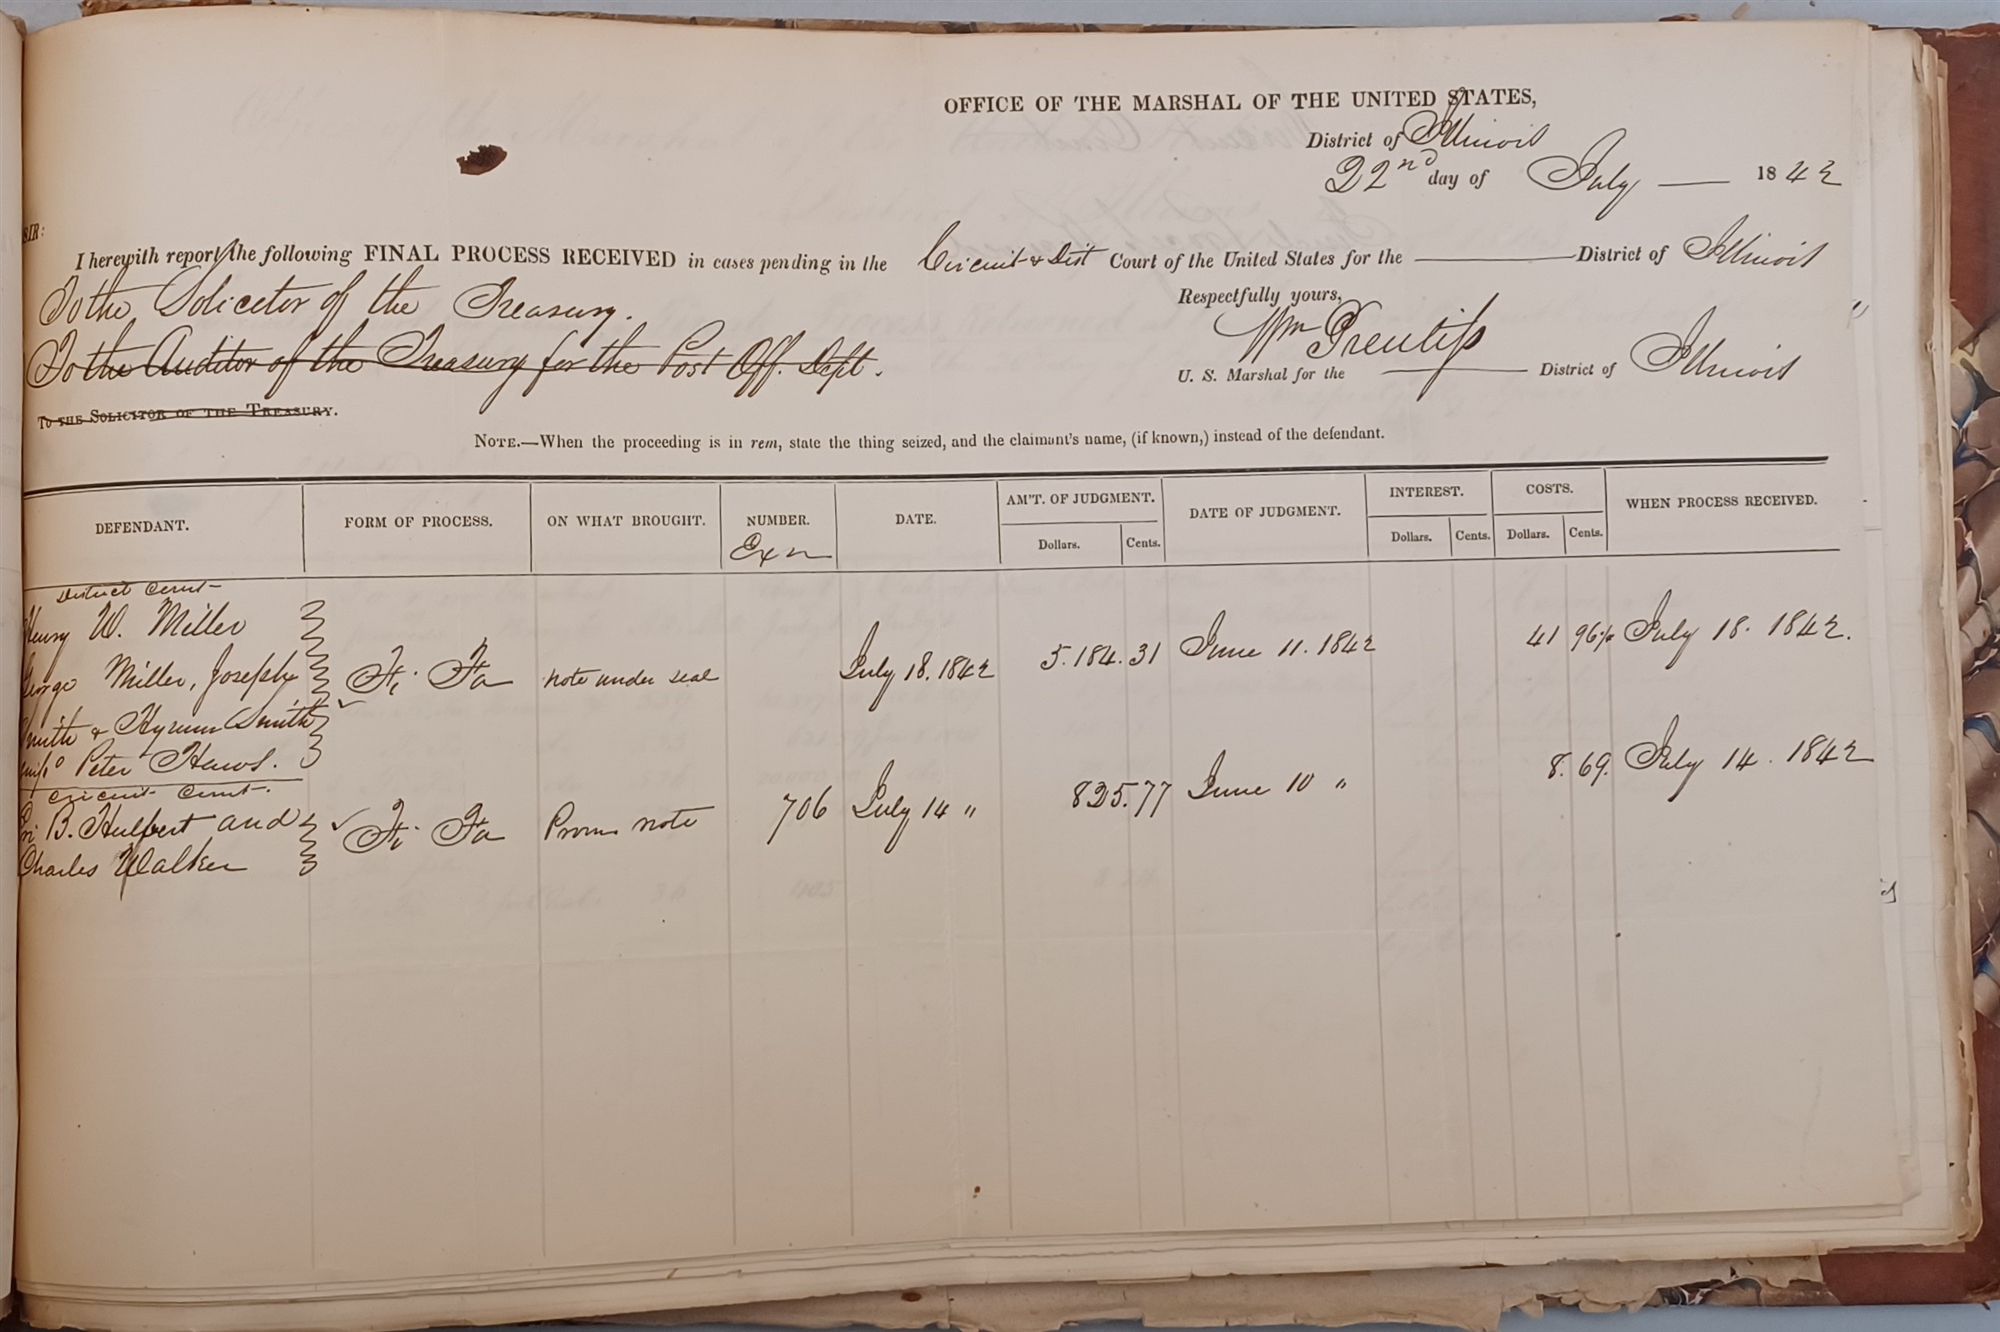 OFFICE OF THE MARSHAL OF THE UNITED STATES,
District of Illinois
22nd day of July — 1842
SIR:
I herewith report the following FINAL PROCESS RECEIVED in cases pending in the Circuit & Dist Court of the United States for the ——— District of Illinois
To the Solicitor of the Treasury.
Respectfully yours,
Wm Prentiss
To the Auditor of the Treasury for the Post Off. Dept.
U. S. Marshal for the ——— District of Illinois
To the Solicitor of the Treasury.
Note.—When the proceeding is in rem, state the thing seized, and the claimant's name, (if known,) instead of the defendant.
DEFENDANT. FORM OF PROCESS. ON WHAT BROUGHT. NUMBER. DATE. AM'T. OF JUDGMENT. DATE OF JUDGMENT. INTEREST. COSTS. WHEN PROCESS RECEIVED.
Exn Dollars. Cents. Dollars. Cents. Dollars. Cents.
District Court
Henry W. Miller
George Miller, Joseph Fi Fa note under seal July 18. 1842 5.184.31 June 11. 1842 41 96½ July 18. 1842.
Smith & Hyrum Smith
Peter Haws.
Circuit Court.
B. Hulbert and Fi Fa Prom note 706 July 14 " 825.77 June 10 " 8.69. July 14. 1842
Charles Walker